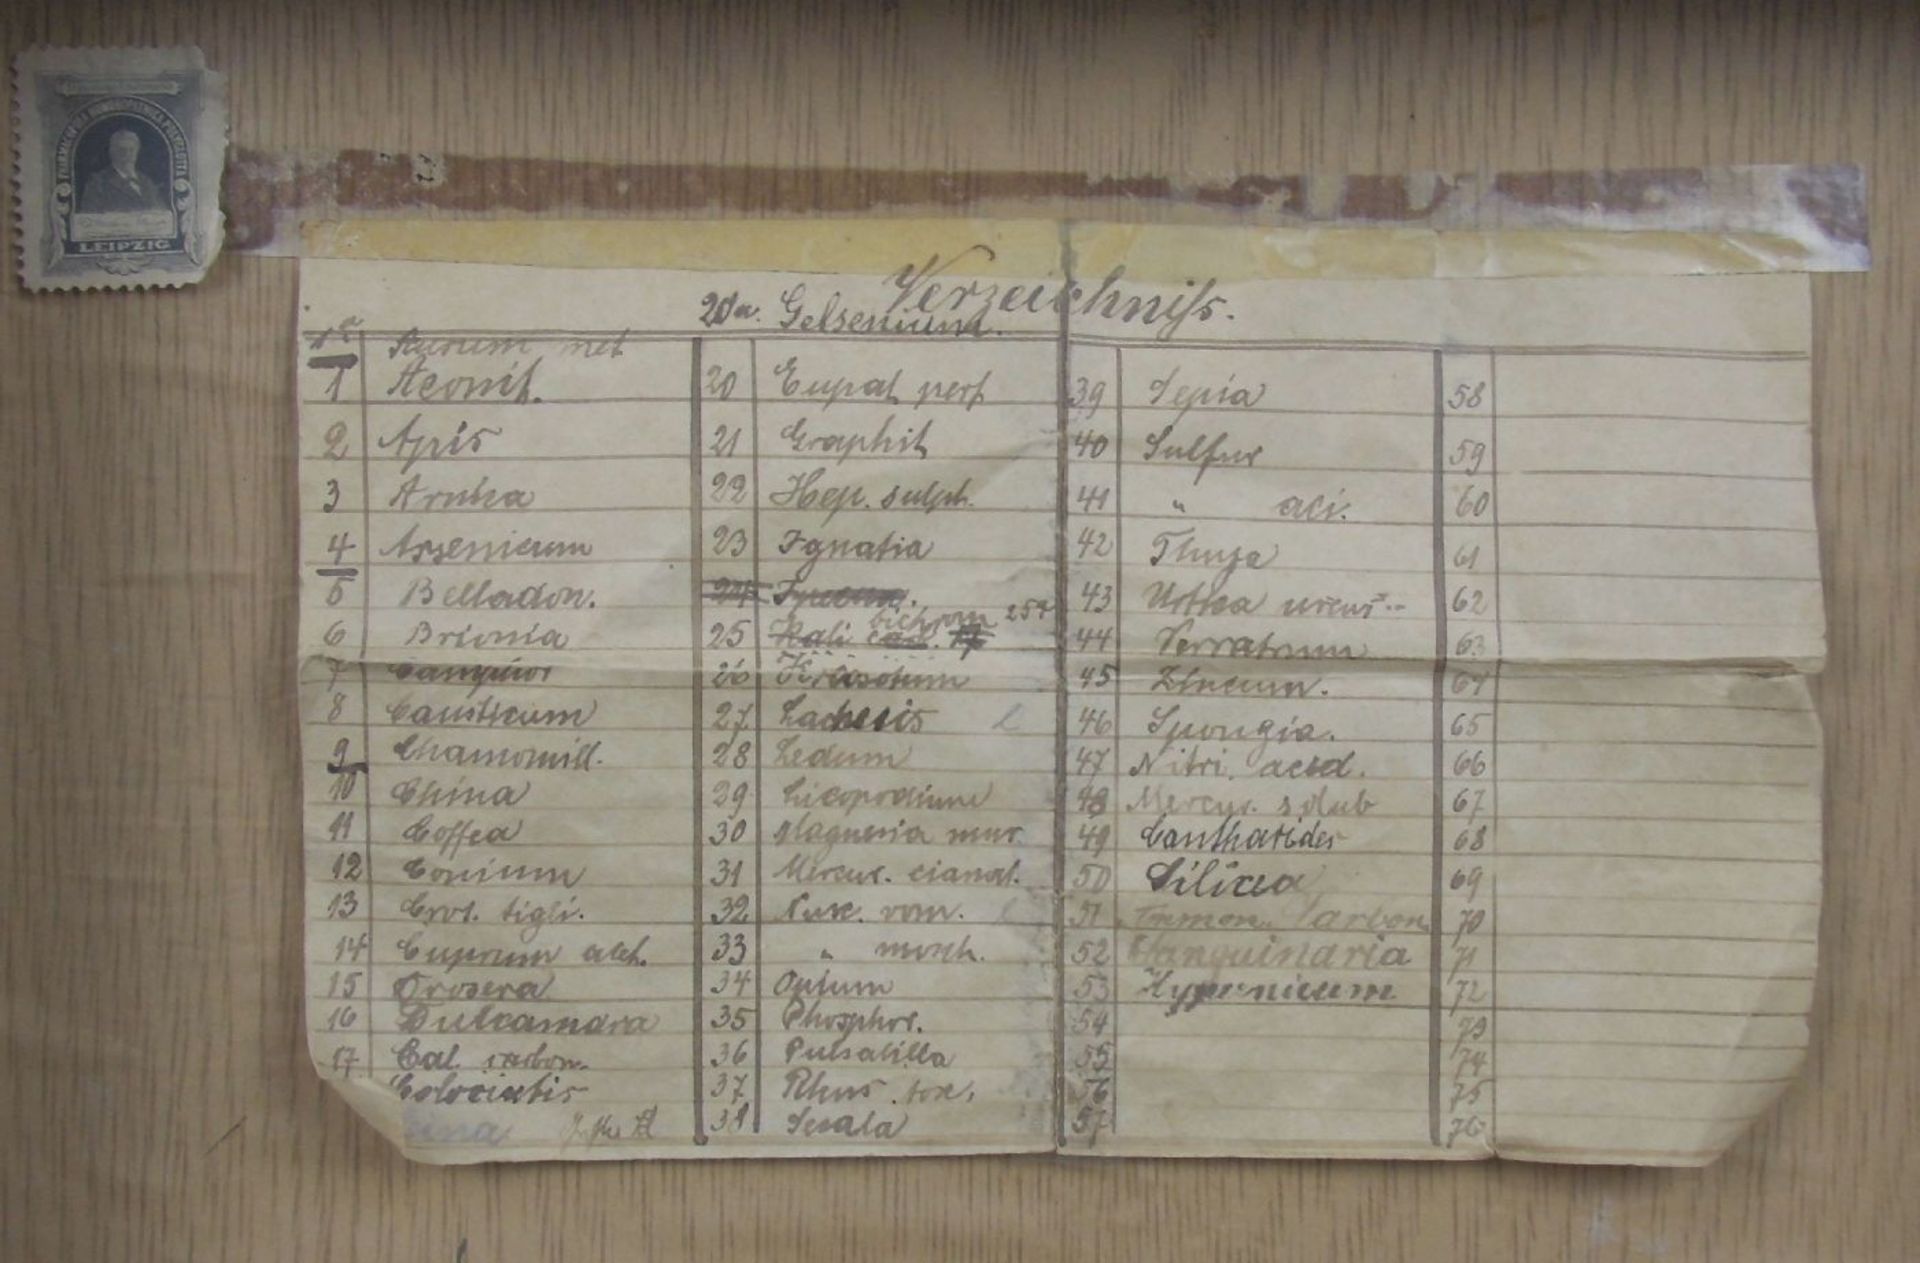 PHARMACOPOEA HOMOEOPATHICA POLYGLOTTA
LEIPZIG
Verzeichniſs.
20a. Gelsenium.
1a Aurum met
1 Aconit.
2 Apis
3 Arnica
4 Arsenicum
5 Belladon.
6 Brionia
7 Camphor
8 Causticum
9 Chamomill.
10 China
11 Coffea
12 Conium
13 Crot. tigli.
14 Cuprum
15 Drosera
16 Dulcamara
17 Cal. carbon.
Colocintis
20 Eupat perf
21 Graphit
22 Hep. sulph.
23 Ignatia
24
bichrom 257
25 Kali
26 Kreosotum
27 Lachesis
28 Ledum
29 Licopodium
30 Magnesia mur.
31 Mercur. cianat.
32 Nux. vom.
33 " mosch.
34 Opium
35 Phosphor.
36 Pulsatilla
37 Rhus. tox.
38 Secala
39 Sepia
40 Sulfur
41 " aci.
42 Thuja
43 Urtica
44 Verratrum
45 Zincum.
46 Spongia.
47 Nitri. acid.
48 Mercur. solub
49 Cantharides
50 Silicea
51 Ammon. Carbon
52 Sanguinaria
53 Hypericum
54
55
56
57
58
59
60
61
62
63
64
65
66
67
68
69
70
71
72
73
74
75
76